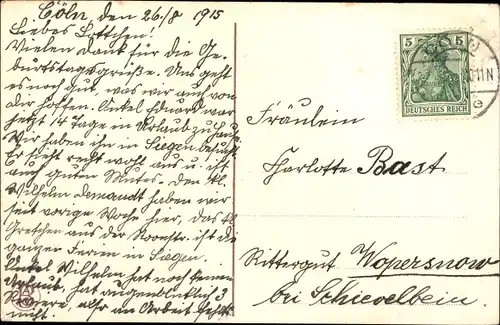 Cöln, den 26./8 1915
Liebes Lottchen!
Vielen Dank für die Ge-
burtstagsgrüße. Uns geht
es noch gut, was wir auch von
Dir hoffen. Onkel Eduard war
jetzt 14 Tage in Urlaub zu Haus.
Wir haben ihn in Siegen besucht.
Er sieht recht wohl aus u. ist
auch guten Mutes. Den kl.
Wilhelm Demandt haben wir
seit vorige Woche hier, das kl.
Gretchen aus der Roonstr. ist die
ganzen Ferien in Siegen.
Onkel Wilhelm hat noch keinen
Urlaub, hat augenblicklich 3
also an Arbeit fehlts
nicht.
5 5
DEUTSCHES REICH
11N
Fräulein
Charlotte Bast
Rittergut Wopersnow
bei Schievelbein.